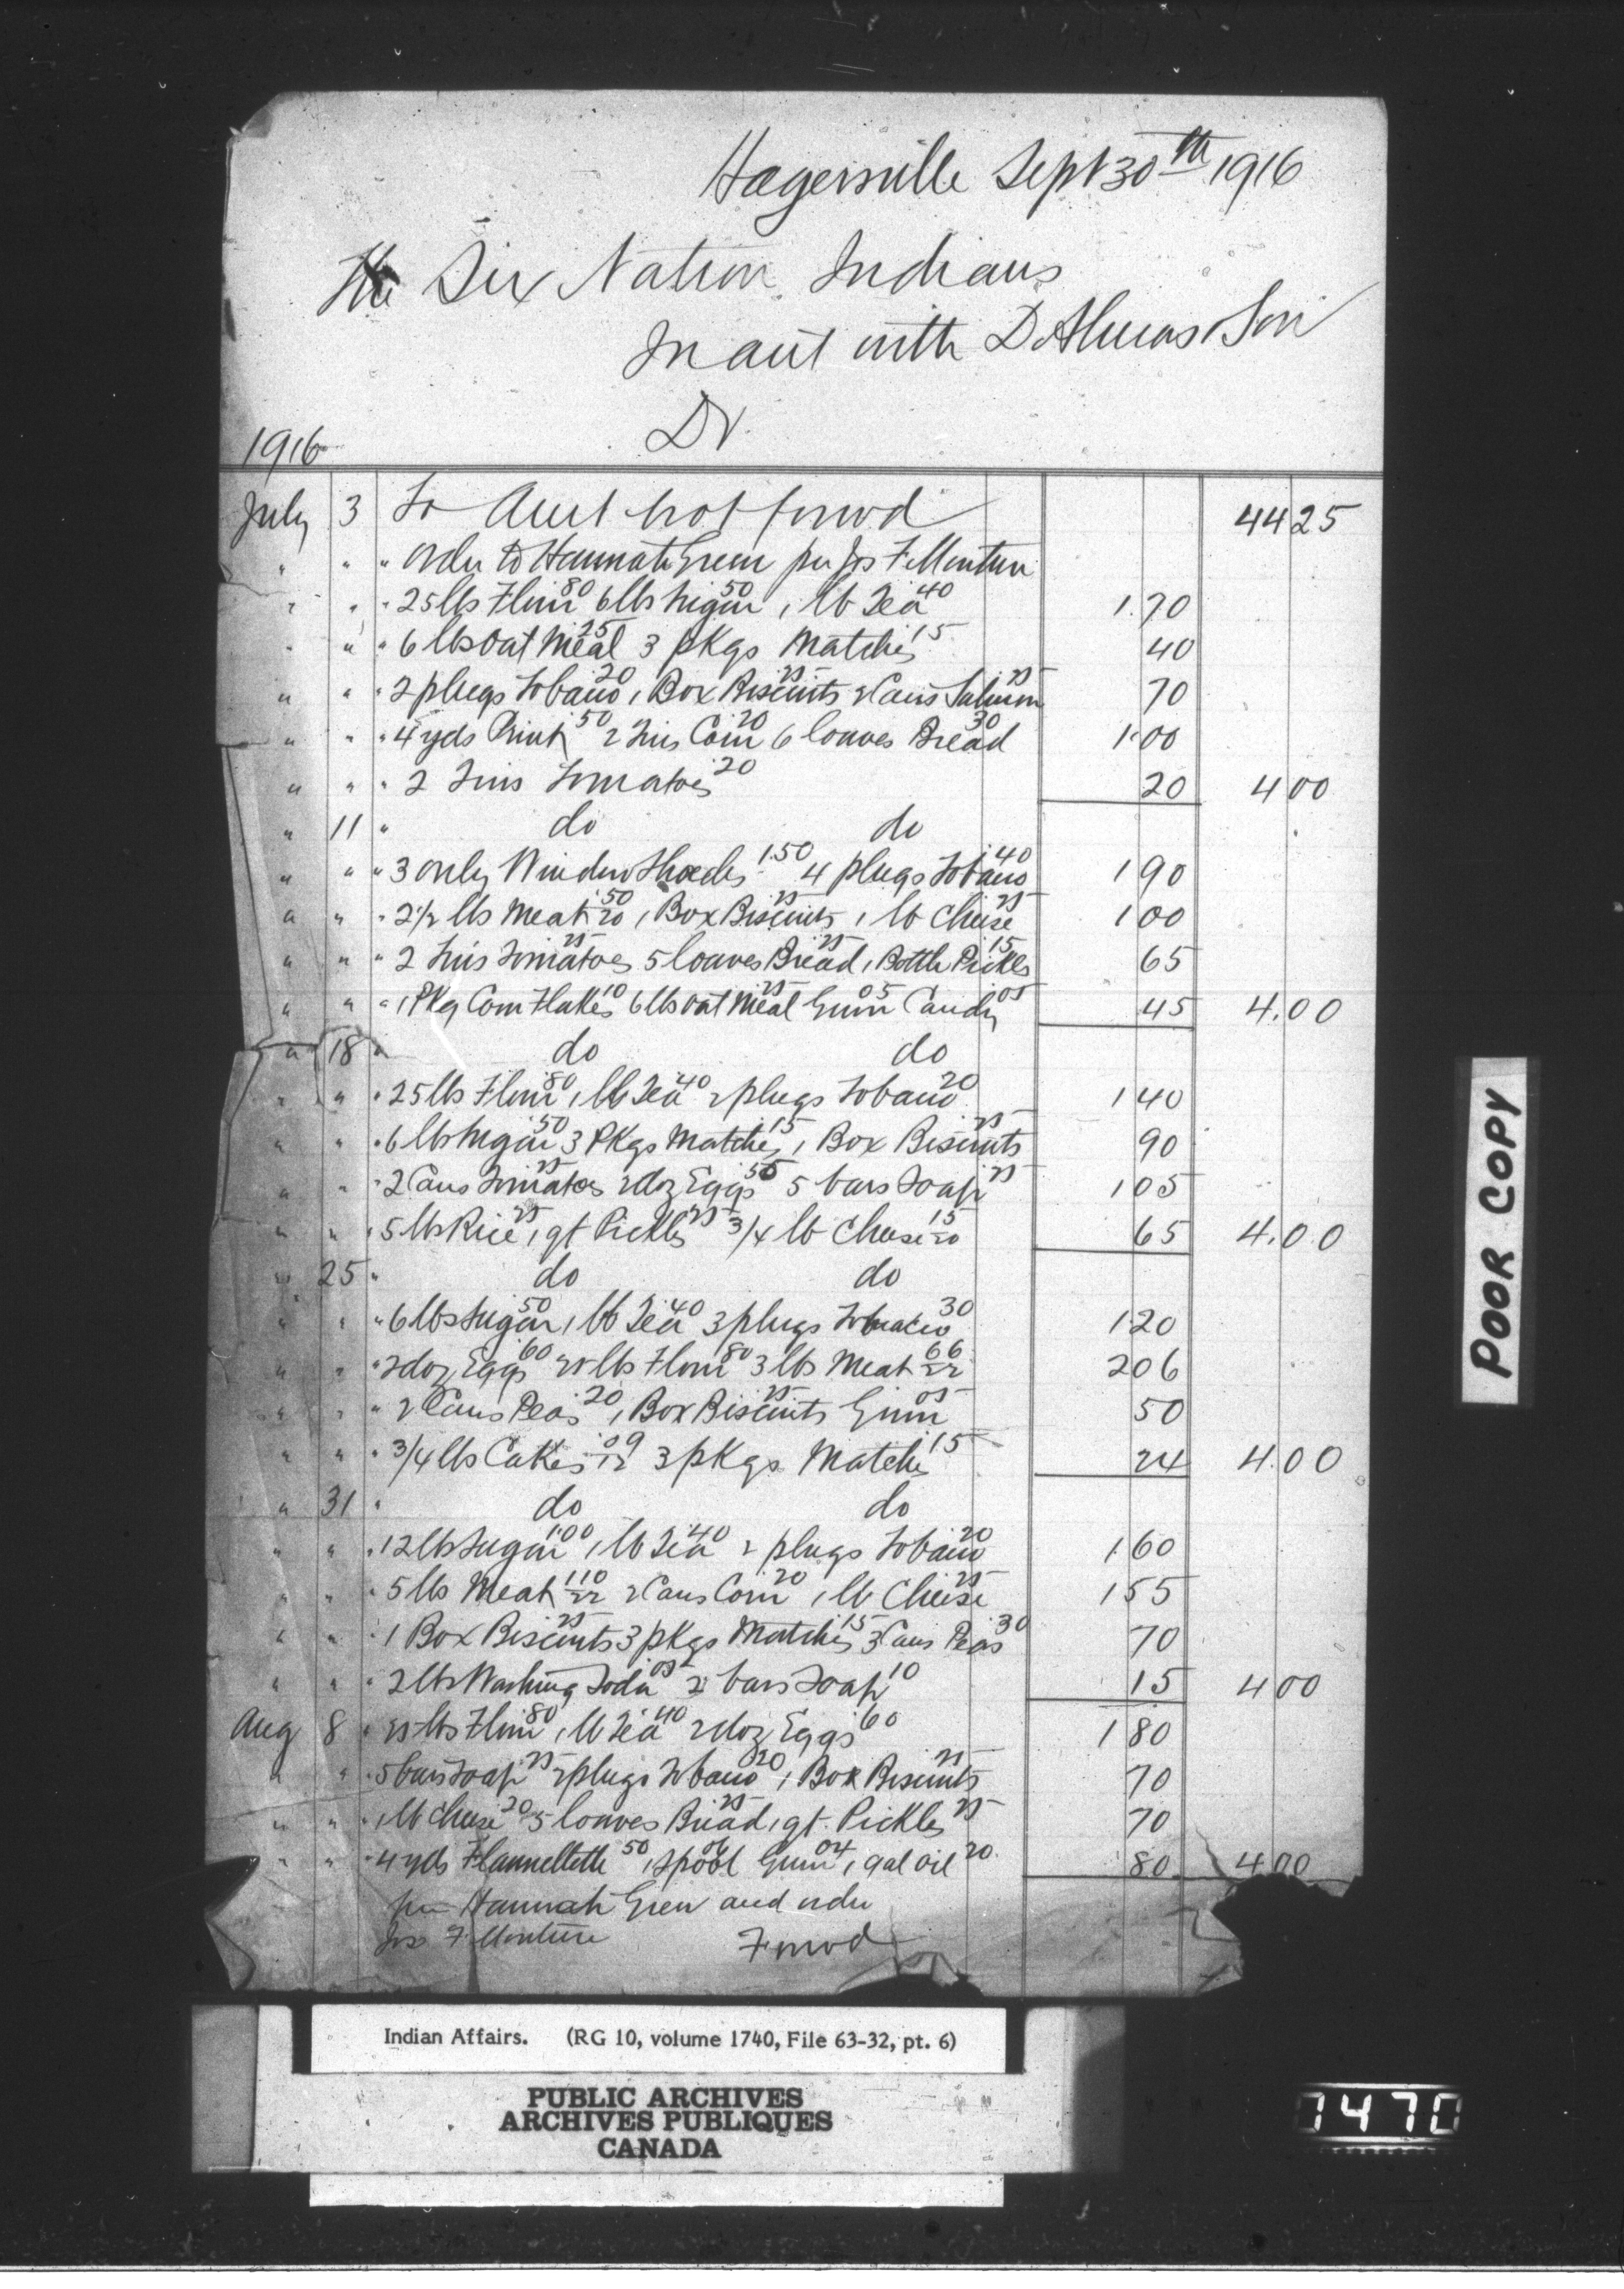 Hagersville Sept 30th 1916
The Six Nation Indians
In acct with D. Almas & Son
Dr.
1916
July 3 To Amt brot forwd 44 25
" " " Order to Hannah Green per Jos F. Monture
" " " 25 lbs Flour 80 6 lbs sugar 50 1 lb Tea 40 1.70
" " " 6 lbs Oat Meal 25 3 pkgs Matches 15 40
" " " 2 plugs Tobacco 20 1 Box Biscuits 25 2 Cans Salmon 25 70
" " " 4 yds Print 50 2 Tins Corn 20 6 loaves Bread 30 1.00
" " " 2 Tins Tomatoes 20 20 4 00
" 11 " do do
" " " 3 only Window Shades 1.50 4 plugs Tobacco 40 1 90
" " " 2 1/2 lbs Meat 20 50 1 Box Biscuits 25 1 lb Cheese 25 1 00
" " " 2 Tins Tomatoes 25 5 loaves Bread 25 1 Bottle Pickles 15 65
" " " 1 Pkg Corn Flakes 10 6 lbs Oat Meal 25 Gum 05 Candy 05 45 4.00
" 18 " do do
" " " 25 lbs Flour 80 1 lb Tea 40 2 plugs Tobacco 20 1 40
" " " 6 lbs sugar 50 3 Pkgs Matches 15 1 Box Biscuits 25 90
" " " 2 Cans Tomatoes 25 2 doz Eggs 55 5 bars Soap 25 1 05
" " " 5 lbs Rice 25 1 qt Pickles 25 3/4 lb Cheese 20 15 65 4.00
" 25 " do do
" " " 6 lbs Sugar 50 1 lb Tea 40 3 plugs Tobacco 30 1.20
" " " 2 doz Eggs 60 25 lbs Flour 80 3 lbs Meat 22 66 2 06
" " " 2 Cans Peas 20 1 Box Biscuits 25 Gum 05 50
" " " 3/4 lbs Cakes 12 09 3 pkgs Matches 15 24 4.00
" 31 " do do
" " " 12 lbs Sugar 1.00 1 lb Tea 40 2 plugs Tobacco 20 1.60
" " " 5 lbs Meat 22 110 2 Cans Corn 20 1 lb Cheese 25 1 55
" " " 1 Box Biscuits 25 3 pkgs Matches 15 3 Cans Peas 30 70
" " " 2 lbs Washing Soda 05 2 bars Soap 10 15 4 00
Aug 8 " 25 lbs Flour 80 1 lb Tea 40 2 doz Eggs 60 1 80
" " " 5 bars Soap 25 2 plugs Tobacco 20 1 Box Biscuits 25 70
" " " 1 lb Cheese 20 5 loaves Bread 25 1 qt. Pickles 25 70
" " " 4 yds Flannellette 50 1 spool 06 Gum 04 1 gal oil 20 80 4 00
per Hannah Green and order
Jos F. Monture Forwd
POOR COPY
Indian Affairs. (RG 10, volume 1740, File 63-32, pt. 6)
PUBLIC ARCHIVES
ARCHIVES PUBLIQUES
CANADA
7470